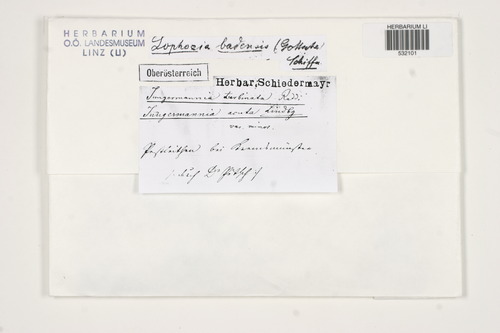 HERBARIUM
O.Ö. LANDESMUSEUM
LINZ (LI)
Lophozia badensis (Gottsche)
Schiffn
HERBARIUM LI
532101
Oberösterreich
Herbar, Schiedermayr
Jungermannia turbinata Raddi
Jungermannia acuta Lindbg
var. minor.
bei Kremsmünster